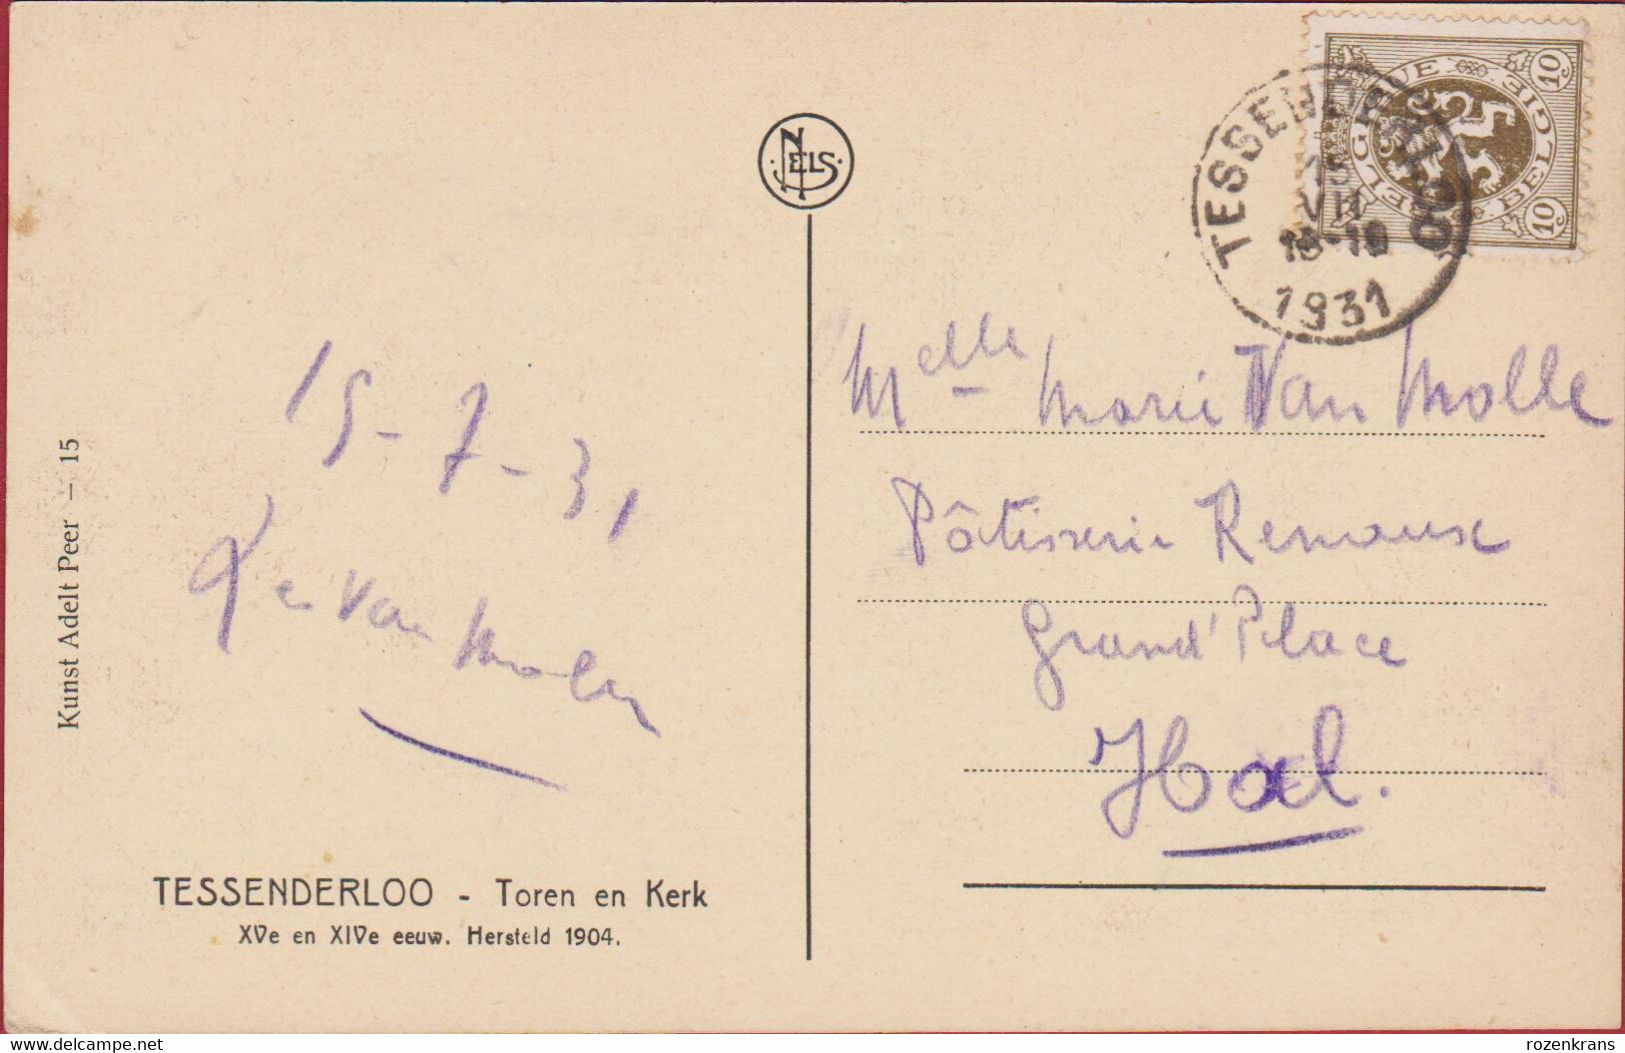 Kunst Adelt Peer — 15
NELS
TESSENDERLOO
15
VII
18-19
1931
BELGIE BELGIQUE
10 c
10 c
15-7-31
Van Molle
Melle Marie Van Molle
Pâtisserie Remoux
Grand'Place
Hal.
TESSENDERLOO - Toren en Kerk
XVe en XIVe eeuw. Hersteld 1904.
delcampe.net
rozenkrans